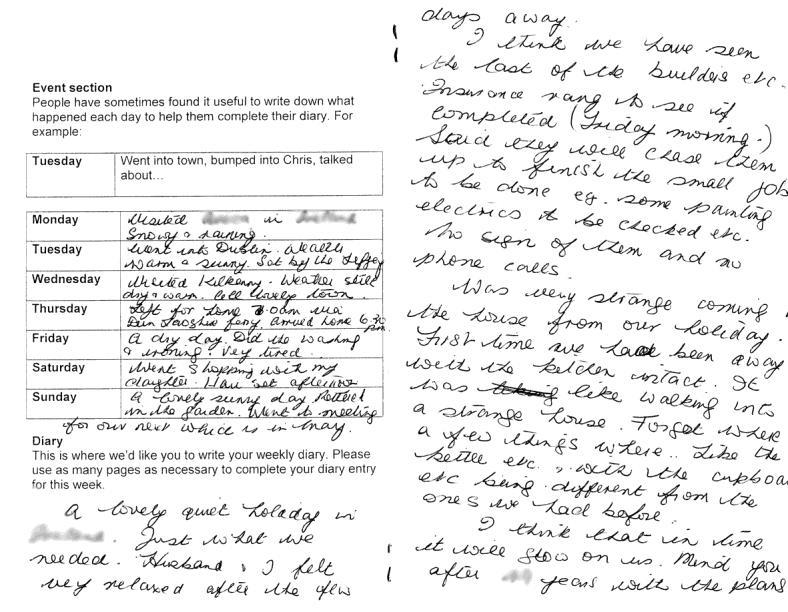 Event section
People have sometimes found it useful to write down what
happened each day to help them complete their diary. For
example:
Tuesday Went into town, bumped into Chris, talked
about…
Monday Visited in
Snowy & raining.
Tuesday Went into Dublin. Weather
warm & sunny. Sat by the Liffey
Wednesday Visited Kilkenny. Weather still
dry & warm. lovely town.
Thursday Left for home 7.00am via
Dun Laoghaire ferry, arrived home 6.30
pm.
Friday A dry day. Did the washing
& ironing. Very tired.
Saturday Went shopping with my
daughter. Hair set afternoon
Sunday A lovely sunny day. Pottered
in the garden. Went to meeting
for our next which is in May.
Diary
This is where we'd like you to write your weekly diary. Please
use as many pages as necessary to complete your diary entry
for this week.
A lovely quiet holiday in
. Just what we
needed. Husband & I felt
very relaxed after the few
days away.
I think we have seen
the last of the builders etc.
Insurance rang to see if
completed (Friday morning.)
Said they will chase them
up to finish the small job
to be done eg. some painting
electrics to be checked etc.
No sign of them and no
phone calls.
Was very strange coming
the house from our holiday.
First time we had been away
with the kitchen intact. It
was like walking into
a strange house. Forgot where
a few things where. Like the
kettle etc. & with the cupboa
etc being different from the
ones we had before.
I think that in time
it will on us. Mind you
after years with the plans